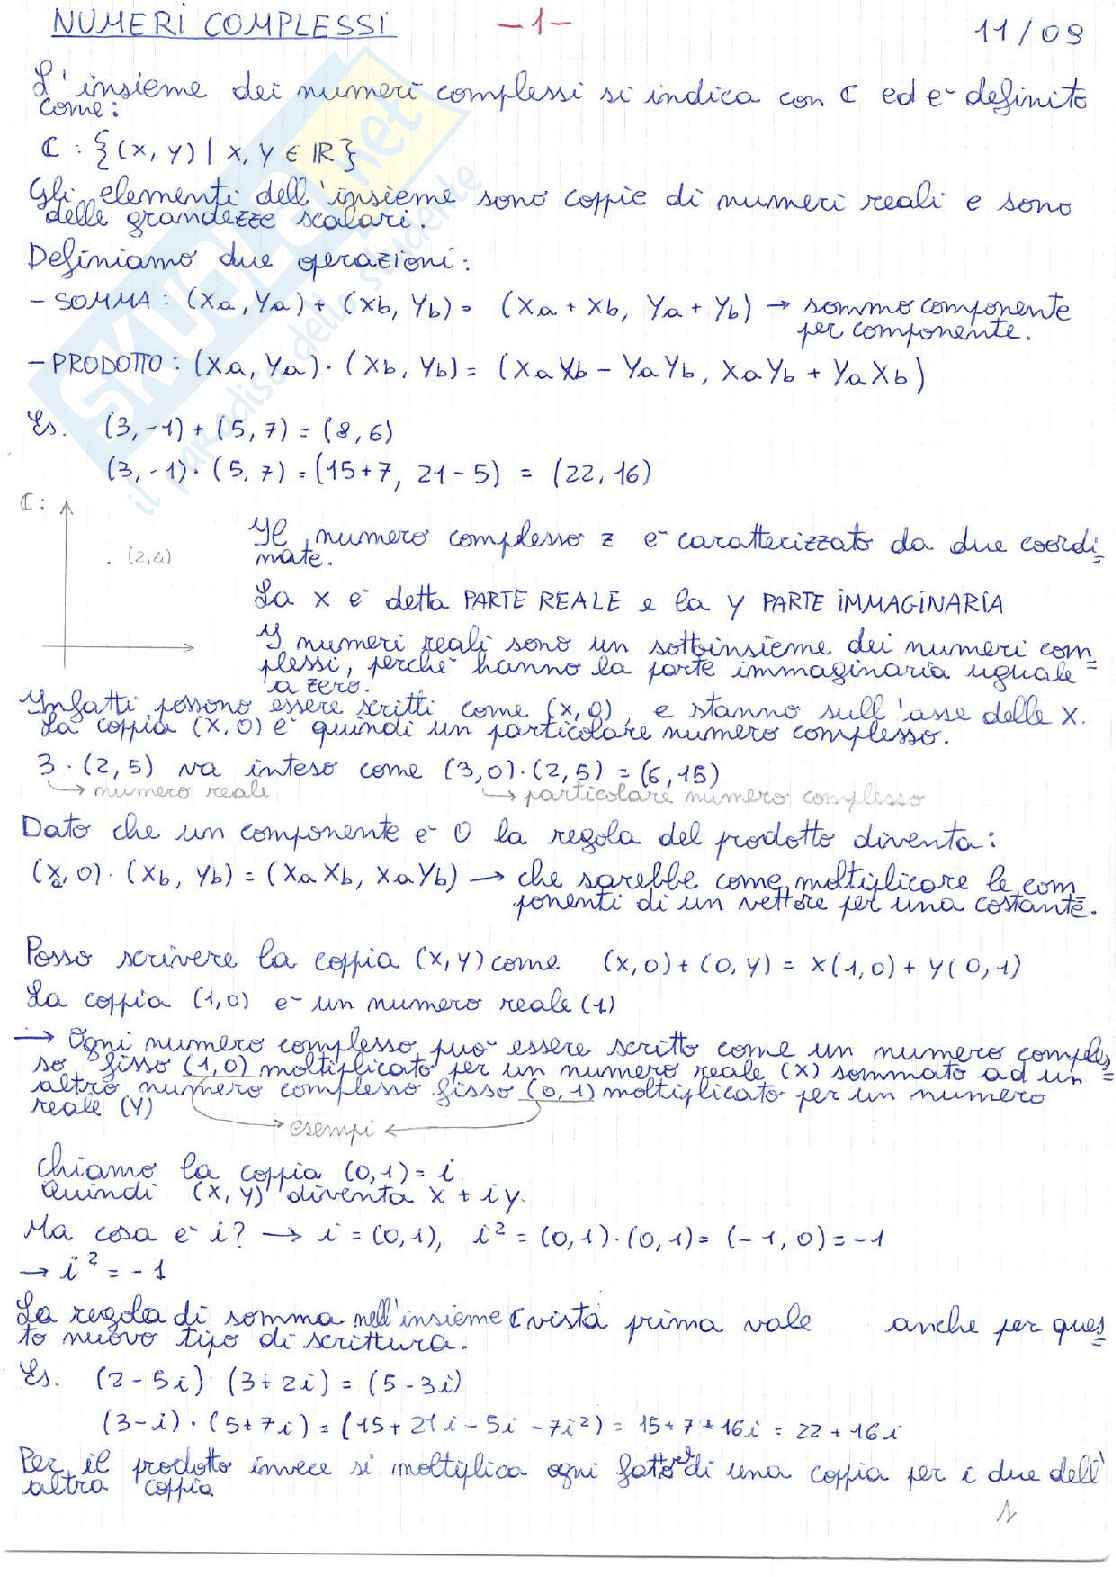 NUMERI COMPLESSI -1- 11/09
L'insieme dei numeri complessi si indica con ℂ ed è definito
come:
ℂ : {(x, y) | x, y ∈ ℝ}
Gli elementi dell'insieme sono coppie di numeri reali e sono
delle grandezze scalari.
Definiamo due operazioni:
- SOMMA: (xa, ya) + (xb, yb) = (xa + xb, ya + yb) → sommo componente
per componente.
- PRODOTTO: (xa, ya) · (xb, yb) = (xa xb - ya yb, xa yb + ya xb)
Es. (3, -1) + (5, 7) = (8, 6)
(3, -1) · (5, 7) = (15+7, 21-5) = (22, 16)
ℂ:
(2,4)
Il numero complesso z è caratterizzato da due coordi=
nate.
La x è detta PARTE REALE e la y PARTE IMMAGINARIA
I numeri reali sono un sottoinsieme dei numeri com=
plessi, perchè hanno la parte immaginaria uguale
a zero.
Infatti possono essere scritti come (x, 0), e stanno sull'asse delle x.
La coppia (x, 0) è quindi un particolare numero complesso.
3 · (2, 5) va inteso come (3, 0) · (2, 5) = (6, 15)
→ numero reale → particolare numero complesso
Dato che un componente è 0 la regola del prodotto diventa:
(xa, 0) · (xb, yb) = (xa xb, xa yb) → che sarebbe come moltiplicare le com=
ponenti di un vettore per una costante.
Posso scrivere la coppia (x, y) come (x, 0) + (0, y) = x(1, 0) + y(0, 1)
La coppia (1, 0) è un numero reale (1)
→ Ogni numero complesso può essere scritto come un numero comples=
so fisso (1, 0) moltiplicato per un numero reale (x) sommato ad un
altro numero complesso fisso (0, 1) moltiplicato per un numero
reale (y)
→ esempi ←
Chiamo la coppia (0, 1) = i
Quindi (x, y) diventa x + iy.
Ma cosa è i? → i = (0, 1), i² = (0, 1) · (0, 1) = (-1, 0) = -1
→ i² = -1
La regola di somma nell'insieme ℂ vista prima vale anche per ques=
to nuovo tipo di scrittura.
Es. (2 - 5i) (3 + 2i) = (5 - 3i)
(3-i) · (5+7i) = (15 + 21i - 5i - 7i²) = 15 + 7 + 16i = 22 + 16i
Per il prodotto invece si moltiplica ogni fattore di una coppia per i due dell'
altra coppia
1
SKUOLA.net
il paradiso dello studente